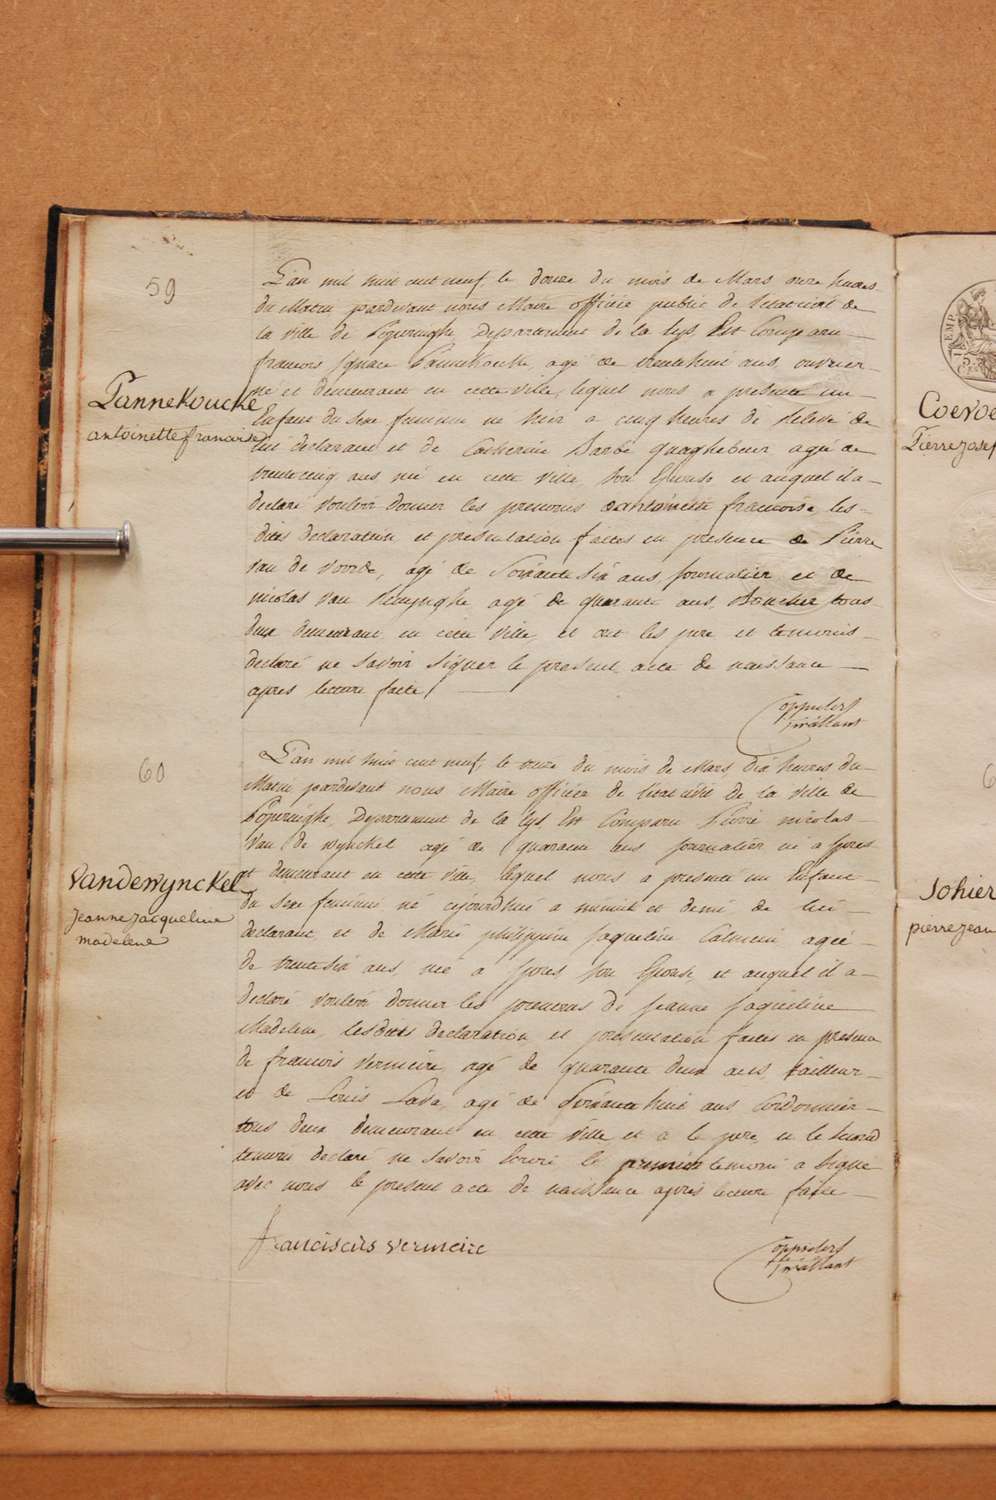 59
L'an mil huit cent neuf le douze du mois de Mars onze heures
du Matin pardevant nous Maire officier public de l'etat civil de
la ville de Popuringhe Departement de la Lys Est Comparu
francois Ignace Pannekoucke agé de trentehuit ans, ouvrier
né et demeurant en cette ville, lequel nous a presenté un
Pannekoucke
Enfant du Sexe feminin né hier a cinq heures de Relevé de
antoinette francoise
lui declarant et de Catherine Barbe Quaghebeur agée de
trentecinq ans née en cette ville son Epouse et auquel il a
declaré vouloir donner les prenoms d'antoinette francoise les
dites declaration et présentation faites en presence de Pierre
Van de Voorde, agé de Soixante six ans journalier et de
nicolas Van Renynghe agé de quarante ans, Boucher tous
deux demeurant en cette ville et ont les pere et temoins
declaré ne Savoir Signer le present acte de naissance
apres lecture faite /
60
L'an mil huit cent neuf le treize du mois de Mars dix heures du
Matin pardevant nous Maire officier de l'etat civil de la ville de
Popuringhe, Departement de la Lys Est Comparu Pierre nicolas
Van de Wynckel agé de quarante ans journalier né a Ypres
Vandewynckel
et demeurant en cette ville, lequel nous a presenté un Enfant
Jeanne Jacqueline
du Sexe feminin né cejourdhui a minuit et demi de lui
madelene
declarant et de Marie philippine Jaqueline agée
de trentesix ans, née a Ypres son Epouse, et auquel il a
declaré vouloir donner les prenoms de Jeanne Jaqueline
Madeleine, lesdites declaration et présentation faites en presence
de francois Vermeire, agé de quarante deux ans, tailleur
et de Louis agé de Soixante huit ans Cordonnier
tous deux demeurant en cette ville et a le pere et le second
temoin declaré ne Savoir Ecrire le premier temoin a Signé
avec nous le present acte de naissance apres lecture faite
franciscus vermeire
Coevoe
Pierre Josep
6
Johier
pierre jean